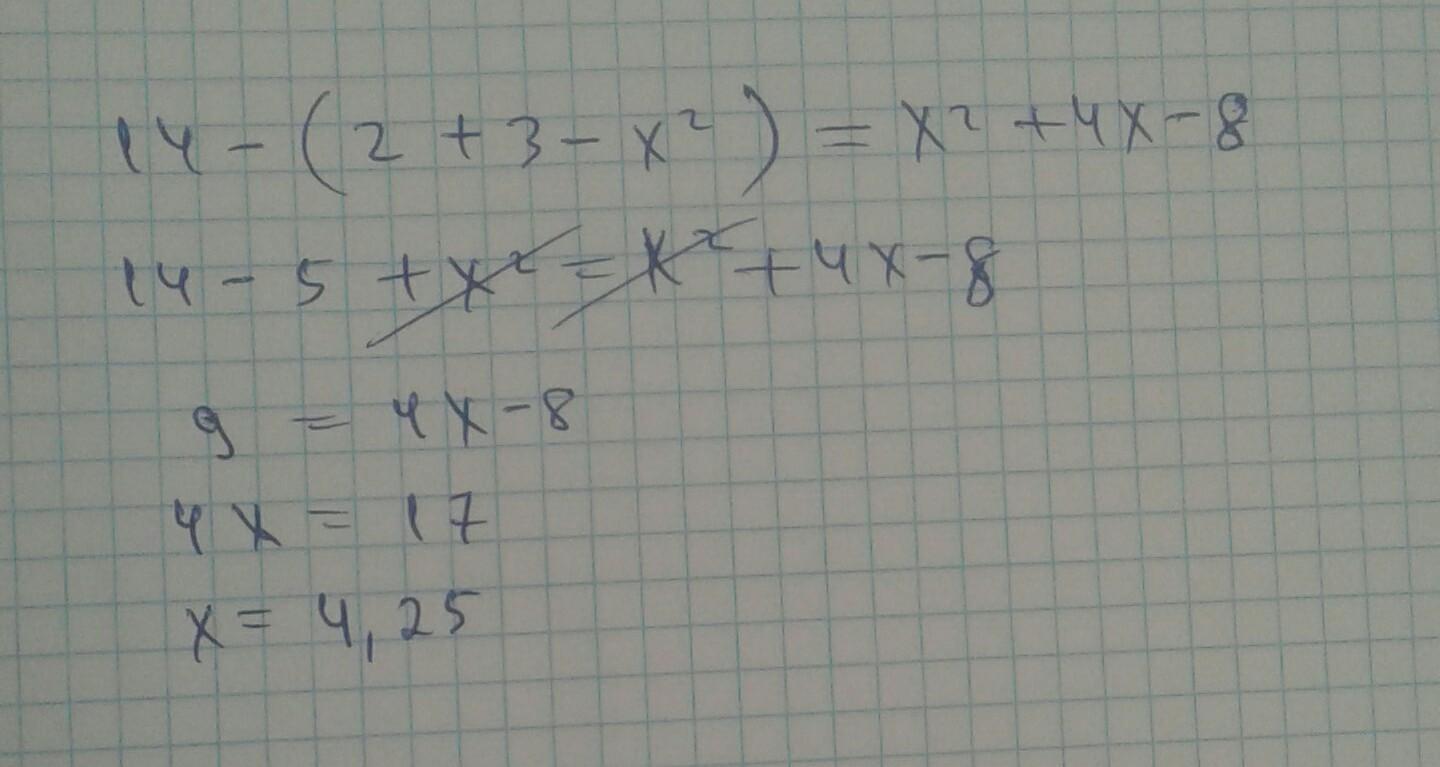 14 - (2 + 3 - x²) = x² + 4x - 8
14 - 5 + x² = x² + 4x - 8
9 = 4x - 8
4x = 17
x = 4,25